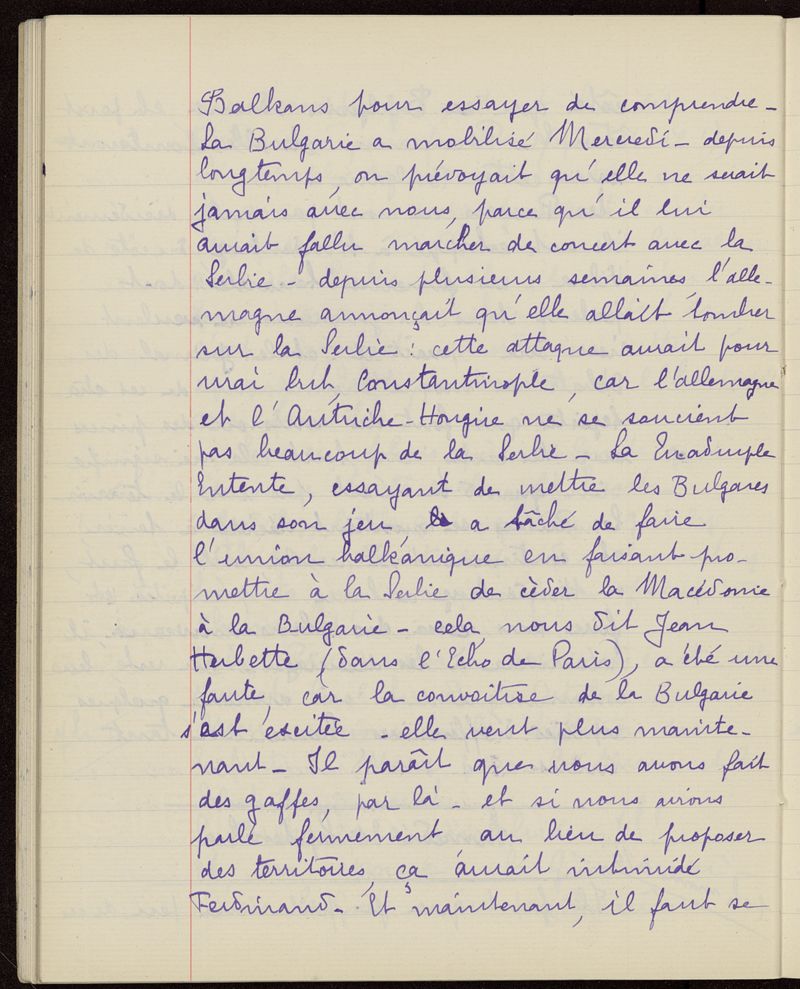 Balkans pour essayer de comprendre -
La Bulgarie a mobilisé Mercredi - depuis
longtemps, on prévoyait qu'elle ne serait
jamais avec nous, parce qu'il lui
aurait fallu marcher de concert avec la
Serbie - depuis plusieurs semaines, l'alle-
magne annonçait qu'elle allait tomber
sur la Serbie : cette attaque aurait pour
vrai but, Constantinople, car l'allemagne
et l'Autriche-Hongrie ne se soucient
pas beaucoup de la Serbie - La Quadruple
Entente, essayant de mettre les Bulgares
dans son jeu, a tâché de faire
l'union balkanique en faisant pro-
mettre à la Serbie de céder la Macédonie
à la Bulgarie - cela, nous dit Jean
Herbette (dans l'Echo de Paris), a été une
faute, car la convoitise de la Bulgarie
s'est excitée - elle veut plus mainte-
nant - Il paraît que nous avons fait
des gaffes, par là - et si nous avions
parlé fermement au lieu de proposer
des territoires, ça aurait intimidé
Ferdinand - Et maintenant, il faut se